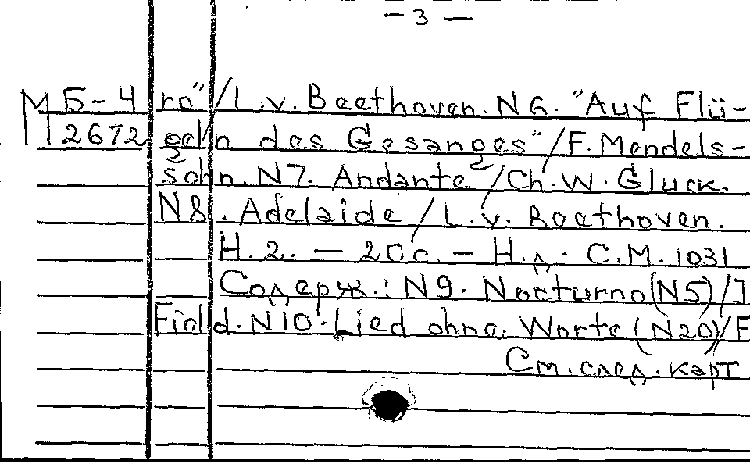 — 3 —
М Б-4 ro"/L.v. Beethoven. N 6. "Auf Flü-
2672 geln des Gesanges"/F. Mendels-
sohn. N7. Andante/Ch. W. Gluck.
N8. Adelaide/L.v. Beethoven.
Н.2. — 20с. — Н.д. С.М. 1031
Содерж.: N9. Nocturno(N5)/J
Field. N10. Lied ohne Worte (N20)/F
См. след. карт